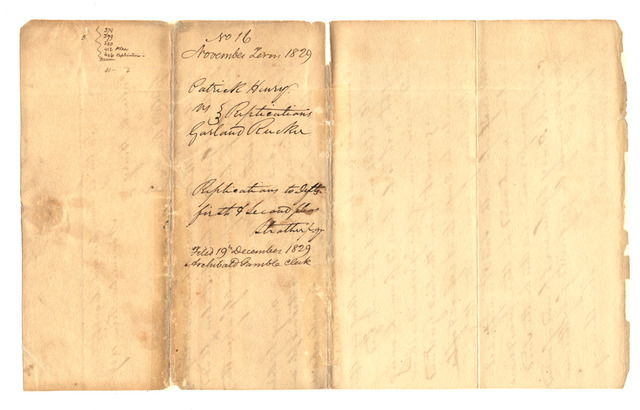 374
393
No 16
November Term 1829
Patrick Henry
vs } Replications
Garland Rucker
Replications to Defts
first & Second plea
Strother Atty
Filed 19th December 1829
Archibald Gamble Clerk